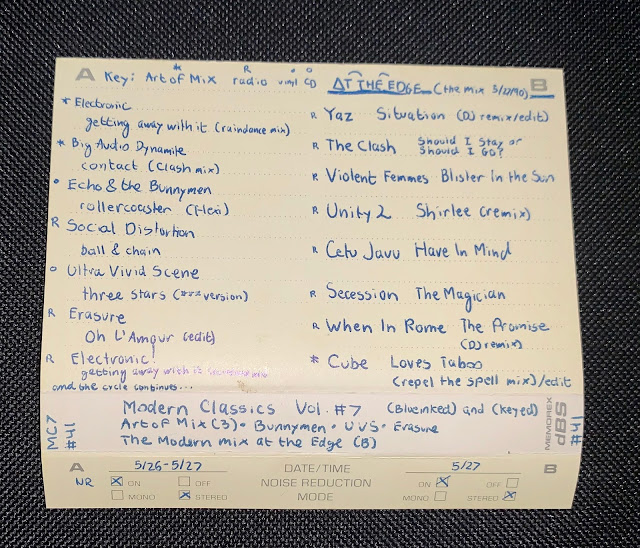 A Key: * Art of Mix R radio ° vinyl ° CD
* Electronic
getting away with it (raindance mix)
* Big Audio Dynamite
contact (Clash mix)
° Echo & the Bunnymen
rollercoaster (Flexi)
R Social Distortion
ball & chain
° Ultra Vivid Scene
three stars (*** version)
R Erasure
Oh L'Amour (edit)
R Electronic!
getting away with it
and the cycle continues...
AT THE EDGE (the mix 5/27/90) B
R Yaz Situation (DJ remix/edit)
R The Clash Should I Stay or
Should I Go?
R Violent Femmes Blister in the Sun
R Unity 2 Shirlee (remix)
R Cetu Javu Have In Mind
R Secession The Magician
R When In Rome The Promise
(DJ remix)
* Cube Loves Taboo
(repel the spell mix)/edit
MC7
#41
Modern Classics Vol. #7 (Blueinked) and (keyed)
Art of Mix (3)• Bunnymen • UVS • Erasure
The Modern mix at the Edge (B)
MEMOREX
dBS
#41
A 5/26-5/27 DATE/TIME 5/27 B
NR ON OFF NOISE REDUCTION ON OFF
MONO STEREO MODE MONO STEREO